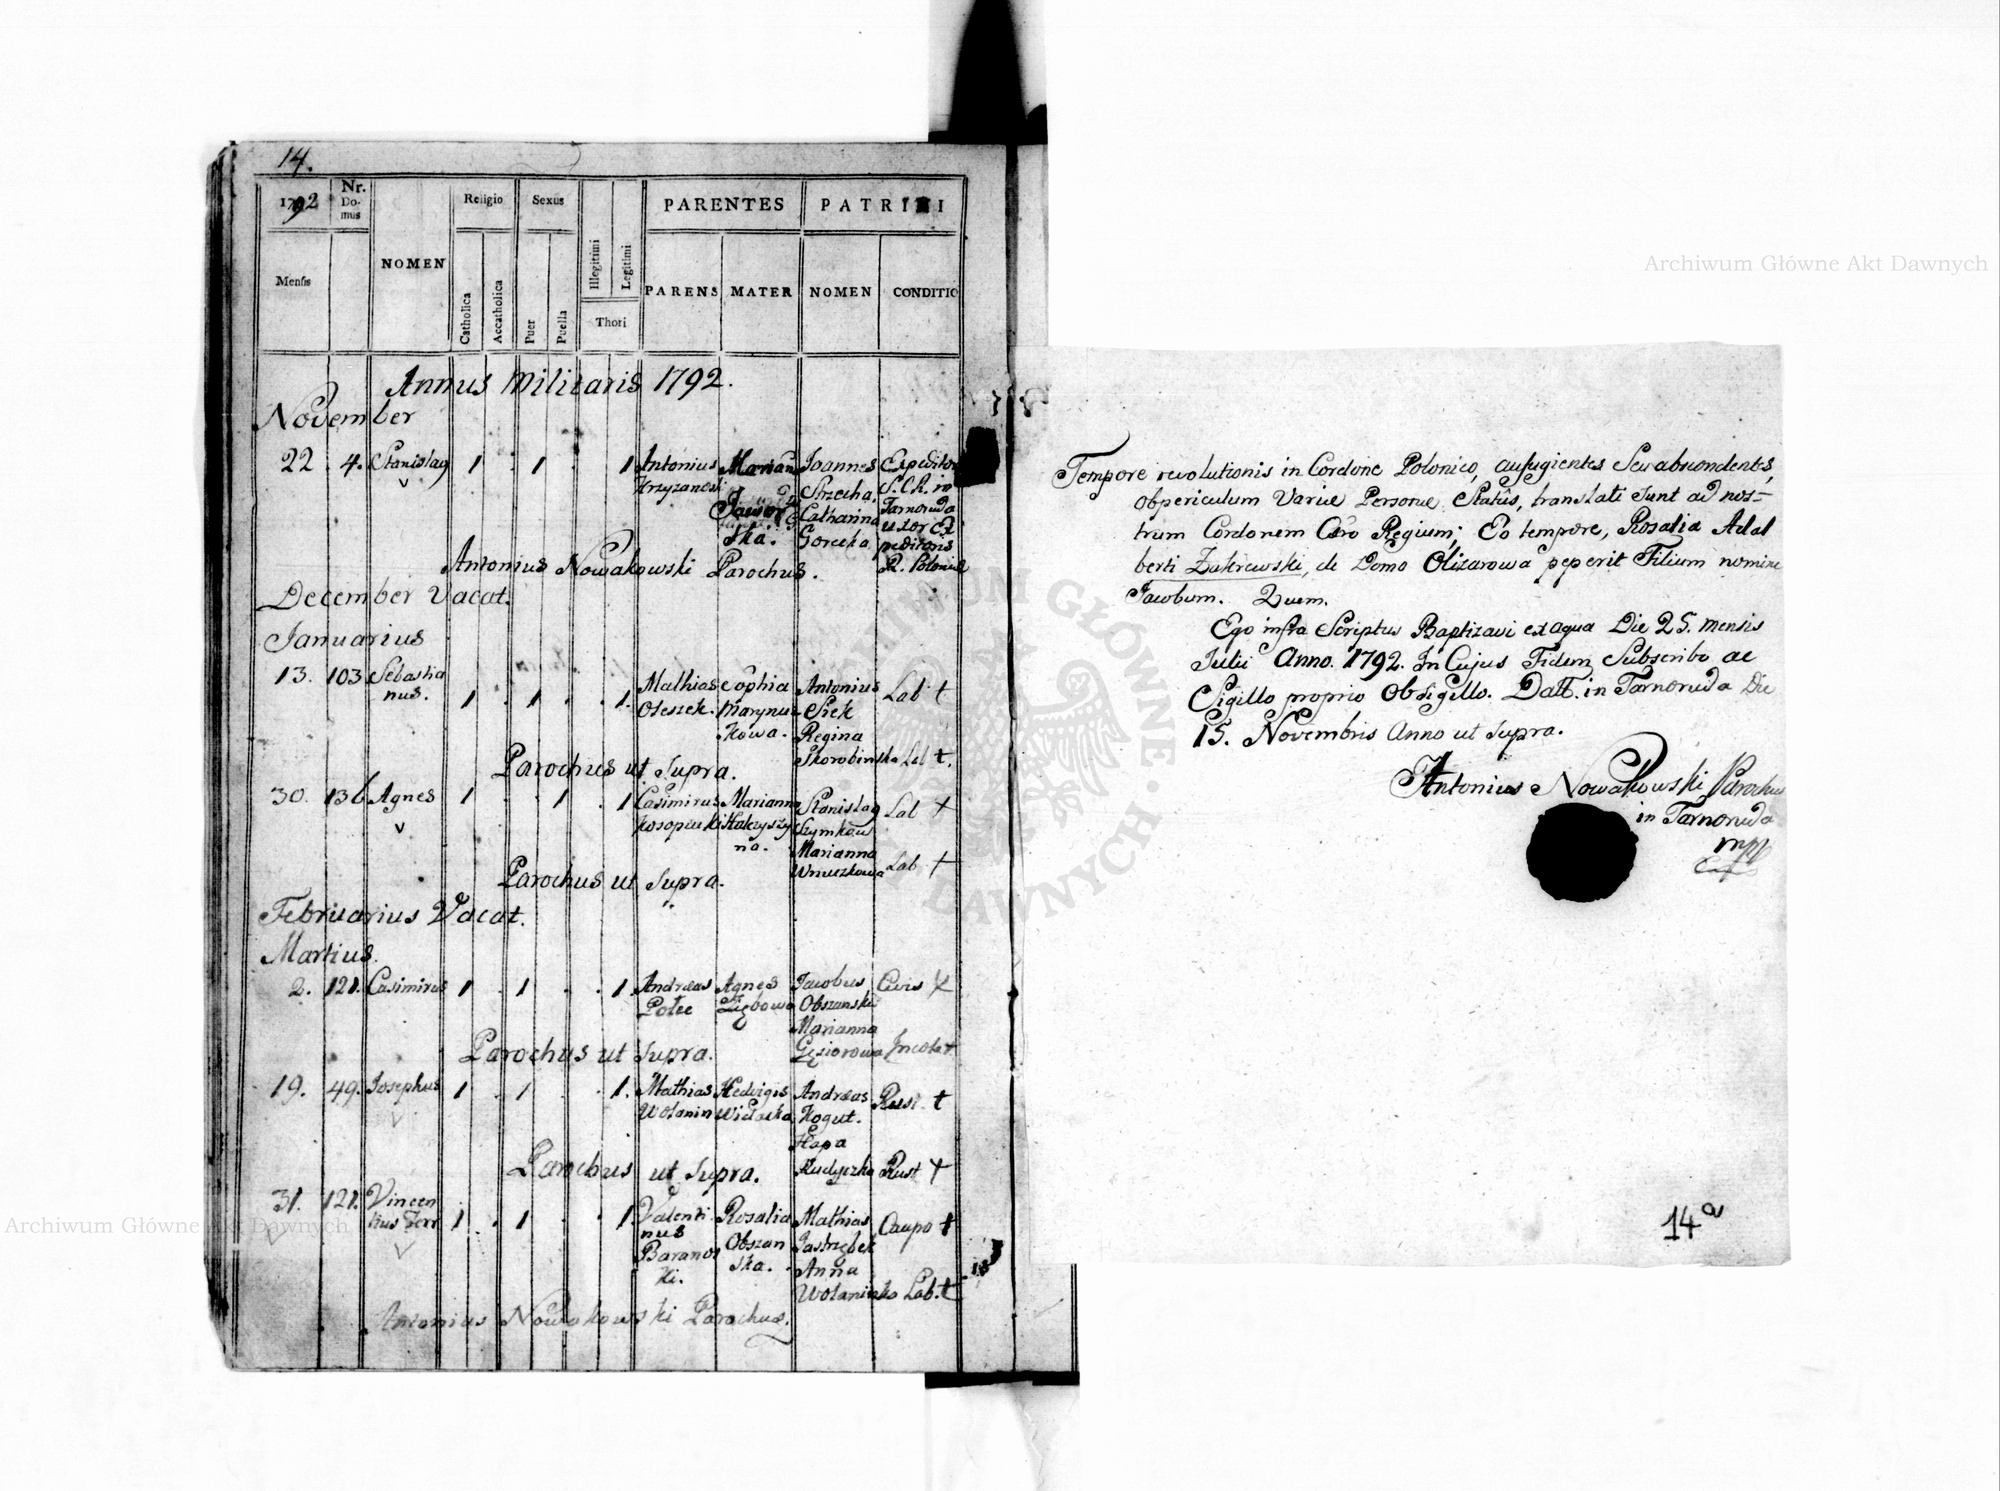 14.
1792 Nr. Domus NOMEN Religio Sexus Illegitimi Legitimi PARENTES PATRINI
Mensis Catholica Accatholica Puer Puella Thori PARENS MATER NOMEN CONDITIO
Annus Militaris 1792.
November
22. 4. Stanislag 1 . 1 . 1 Antonius Marian Joannes Expeditor
Krzyzanoski Strzecha. S.C.R. in
Jawor Catharina Tarnoruda
ska. Gorecka uxor Ex
peditoris
Antonius Nowakowski Parochus. R. Polonie
December Vacat.
Januarius
13. 103 Sebastia Mathias Sophia Antonius Lab †
nus. 1 . 1 . 1. Oleszek. Marynus Siek
kowa. Regina
Parochus ut Supra. Skorobinska Lab †.
30. 136 Agnes 1 . 1 . 1 Casimirus Marianna Stanislag Lab †
na. Marianna
Parochus ut Supra. Lab †
Februarius Vacat.
Martius.
2. 121. Casimirus 1 . 1 . . 1. Andræas Agnes Jacobus Civis †
Potec Obszanski
Marianna
Parochus ut Supra. Gęsiorowa Incola †
19. 49. Josephus 1 . 1 . . 1. Mathias Hedvigis Andræas Rust. †
Wolanin Kogut.
Hapa
Parochus ut Supra. Kudyszka Rust †
31. 121. Vincen Valenti Rosalia Mathias Caupo †
tius Ferr 1 . 1 . . 1 nus Obszan Jastrzębek
Baranos ska. Anna
ki. Wolaninka Lab. †
Antonius Nowakowski Parochus.
Tempore revolutionis in Cordone Polonico, aufugientes Seu abscondentes,
ob periculum Variæ Personæ Statûs, translati Sunt ad nos=
trum Cordonem Cæo Regium; Eo tempore, Rosalia Adal
berti Zakrewski, de Domo Olizarowa peperit Filium nomine
Jacobum. Quem.
Ego infra Scriptus Baptizavi ex aqua Die 25. mensis
Julii Anno. 1792. In Cujus Fidem Subscribo ac
Sigillo proprio Obsigillo. Datt. in Tarnoruda Die
15. Novembris Anno ut Supra.
Antonius Nowakowski Parochus
in Tarnoruda
mpp
14a
Archiwum Główne Akt Dawnych
Archiwum Główne Akt Dawnych
ARCHIWUM GŁÓWNE AKT DAWNYCH